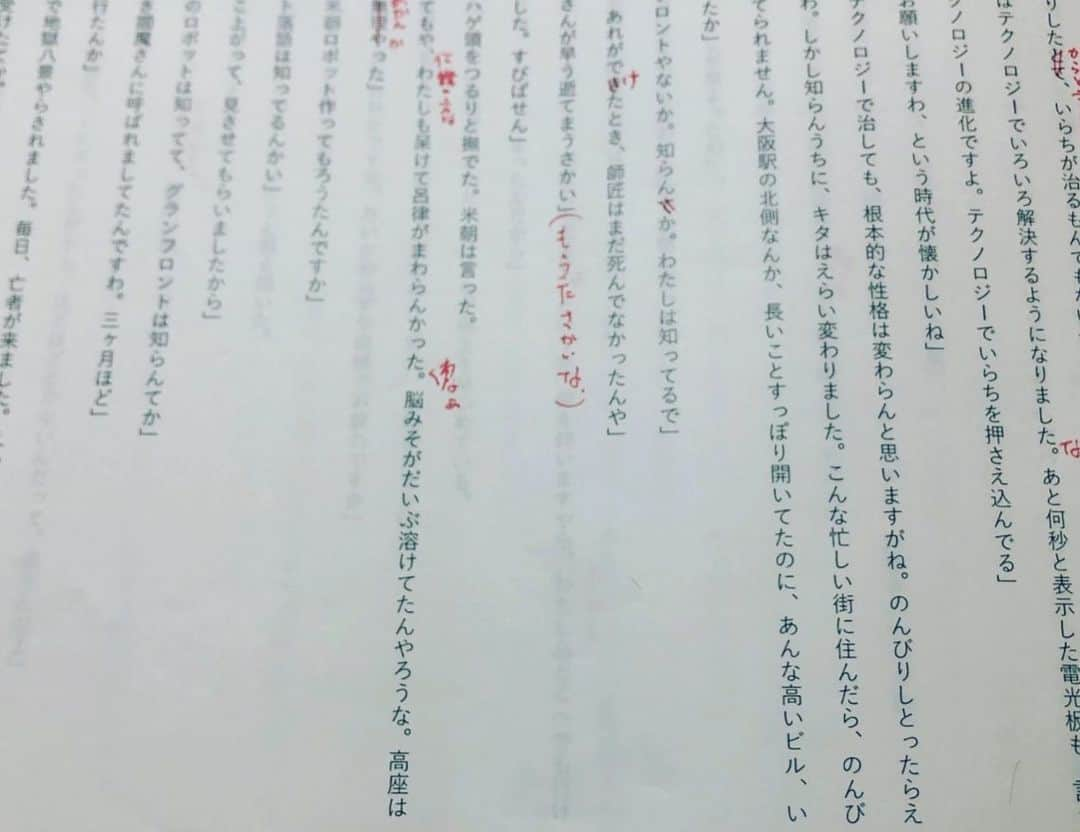 りしたとて、いらちが治るもんでもない
はテクノロジーでいろいろ解決するようになりました。あと何秒と表示した電光板も、言
な
クノロジーの進化ですよ。テクノロジーでいらちを押さえ込んでる」
お願いしますわ、という時代が懐かしいね」
テクノロジーで治しても、根本的な性格は変わらんと思いますがね。のんびりしとったらえ
わ。しかし知らんうちに、キタはえらい変わりました。こんな忙しい街に住んだら、のんび
てられません。大阪駅の北側なんか、長いことすっぽり開いてたのに、あんな高いビル、い
たか」
ロントやないか。知らんさか。わたしは知ってるで」
あれができたとき、師匠はまだ死んでなかったんや」
け
さんが早う逝てまうさかい」(もうたさかいな。)
した。すびばせん」
ハゲ頭をつるりと撫でた。米朝は言った。
てもや、わたしも呆けて呂律がまわらんかった。脳みそがだいぶ溶けてたんやろうな。高座は
くわなぁ
やった」
米朝ロボット作ってもろうたんですか」
ト落語は知ってるんかい」
こ上がって、見させてもらいましたから」
のロボットは知ってて、グランフロントは知らんてか」
き閻魔さんに呼ばれましてたんですわ。三ヶ月ほど」
行たんか」
で地獄八景やらされました。毎日、亡者が来ました。